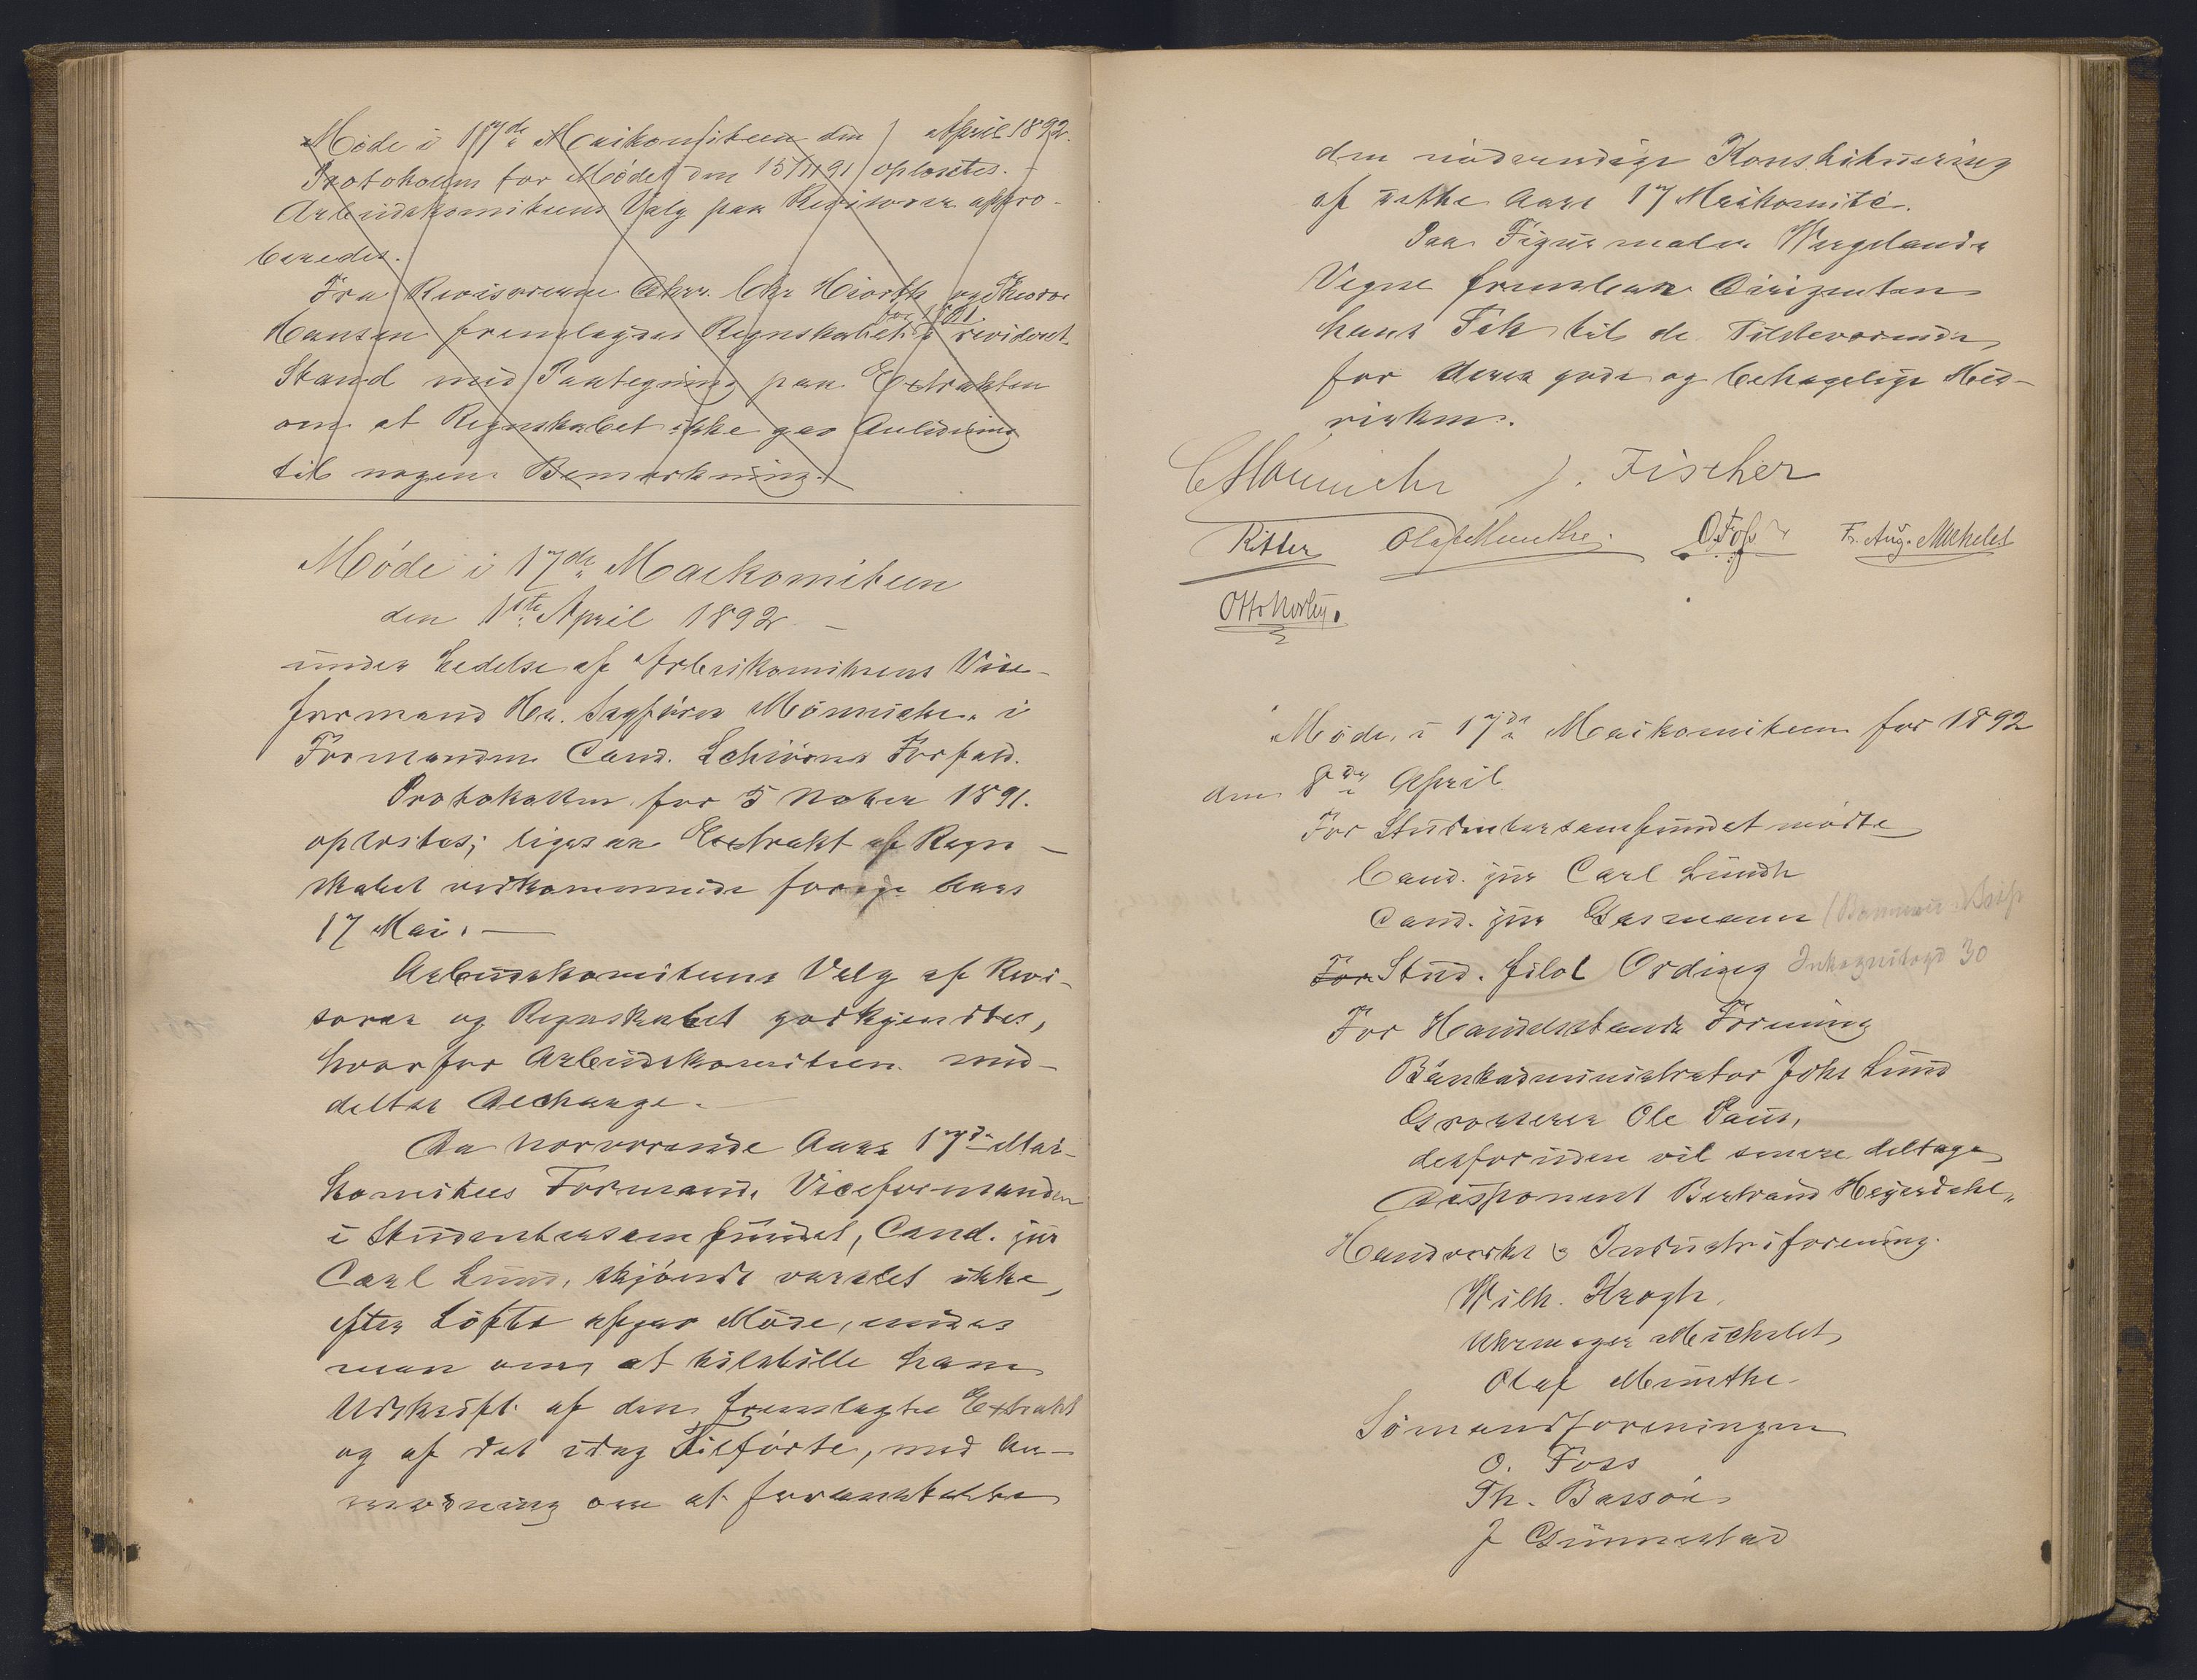 Møde i 17de Maikomiteen den April 1892.
Protokollen for Mødet den 15/11 91 oplæstes.
Arbeidskomiteens Valg paa Revisorer appro-
beredes.
Fra Revisorerne Chr. Hiorth og Theodor
for 1891
Hansen fremlagdes Regnskabet i revideret
Stand med Paategning paa Extrakten
om at Regnskabet ikke gav Anledning
til nogen Bemærkning.
Møde i 17de Maikomiteen
den 1ste April 1892 –
under Ledelse af Arbeiskomiteens Vise-
formand Hr. Sagfører Mønniche i
Formanden Cand. Schiørns Forfald.
Protokollen for 5 Novber 1891.
oplæstes; ligesaa Extrakt af Regn-
skabet vedkommende forrige Aars
17 Mai. —
Arbeidskomiteens Valg af Revi-
sorer og Regnskabet godkjendtes,
hvorfor Arbeidskomiteen med-
deltes Decharge.
Da nærværende Aars 17de Mai-
komitees Formand, Viceformanden
i Studentersamfundet, Cand. jur
Carl Lund, skjøndt varslet ikke,
efter Løfte afgav Møde, enedes
man om, at tilstille ham
Udskrift af den fremlagte Extrakt
og af det idag Tilførte, med An-
modning om at foranstalte
den nødvendige Konstituering
af dette Aars 17 Maikomité.
Paa Figurmaler Wergelands
Vegne frembar Dirigenten
hans Tak til de Tilstevørende
for deres gode og behagelige Med-
virken.
C Mønniche J. Fischer
Ritter Olaf Munthe. O. Foss Fr. Aug. Michelet
Møde i 17de Maikomiteen for 1892
den 8de April
For Studentersamfundet mødte
Cand. jur Carl Lundh
Cand. jur Gasmann
For Stud. filol Ording Inkognitogd 30
For Handelsstands Forening
Bankadministrator Johs Lund
Grosserer Ole Paus,
desforuden vil senere deltage
Disponent Bertrand Heyerdahl
Handverks & Industriforening.
Wilh. Krogh,
Uhrmager Michelet,
Olaf Munthe.
Sømandsforeningen
O. Foss
Th. Bassøe
J Gunnestad